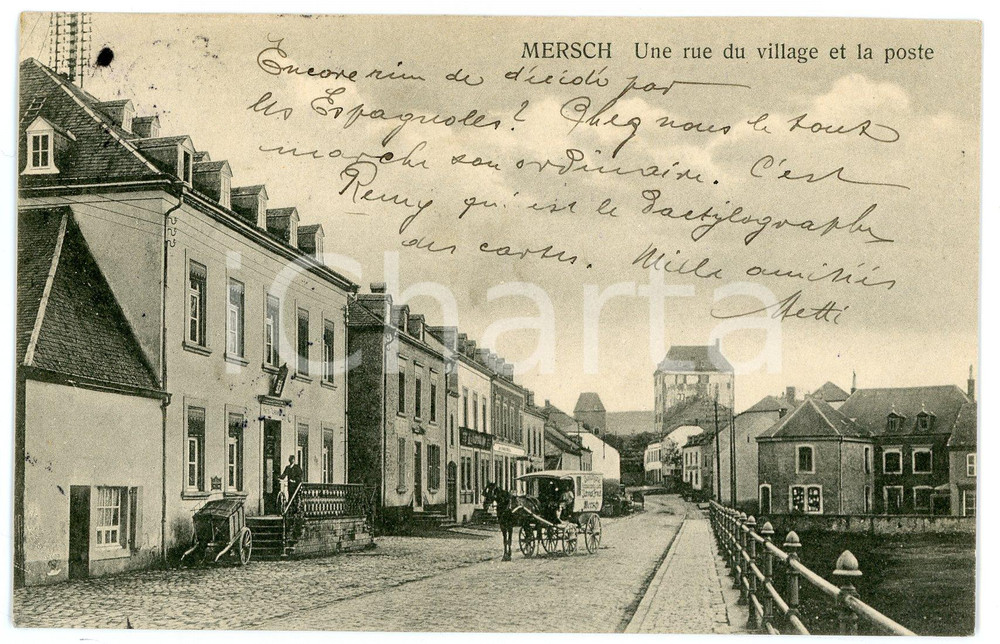 MERSCH Une rue du village et la poste
Encore rien de décidé par
les Espagnoles? Chez nous le tout
marche son ordinaire. C'est
Remy qui est le Dactylographe
des cartes. Mille amitiés
Netti
iCharta